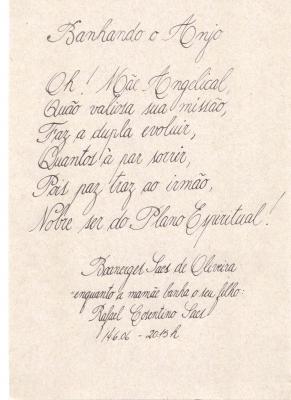 Banhando o Anjo
Oh! Mãe Angelical,
Quão valiosa sua missão,
Faz a dupla evoluir,
Quantos à par sorrir,
Pois paz traz ao irmão,
Nobre ser do Plano Espiritual!
Boanerges Saes de Oliveira
enquanto a mamãe banha o seu filho:
Rafael Cosentino Saes
14.6.06 - 20:13h